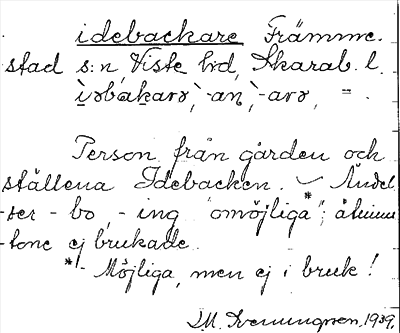 idebackare Främme-
stad s:n, Viste hd, Skarab. l.
ìɔbákarɔ, -an, -arɔ, = .
Person från gården och
ställena Idebacken. – Ändel-
ser - bo, - ing "omöjliga"*; åtminns-
tone ej brukade.
* - Möjliga, men ej i bruk!
1939.